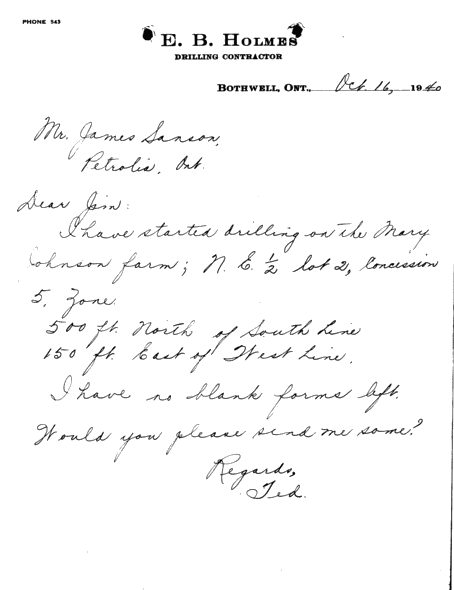 PHONE 143
E. B. HOLMES
DRILLING CONTRACTOR
BOTHWELL, ONT., Oct. 16, 1940
Mr. James Sanson,
Petrolia, Ont.
Dear Jim:
I have started drilling on the Mary
Johnson farm; N. E. ½ lot 2, Concession
5, Zone.
500 ft. North of South Line
150 ft. East of West Line.
I have no blank forms left.
Would you please send me some?
Regards,
Ted.